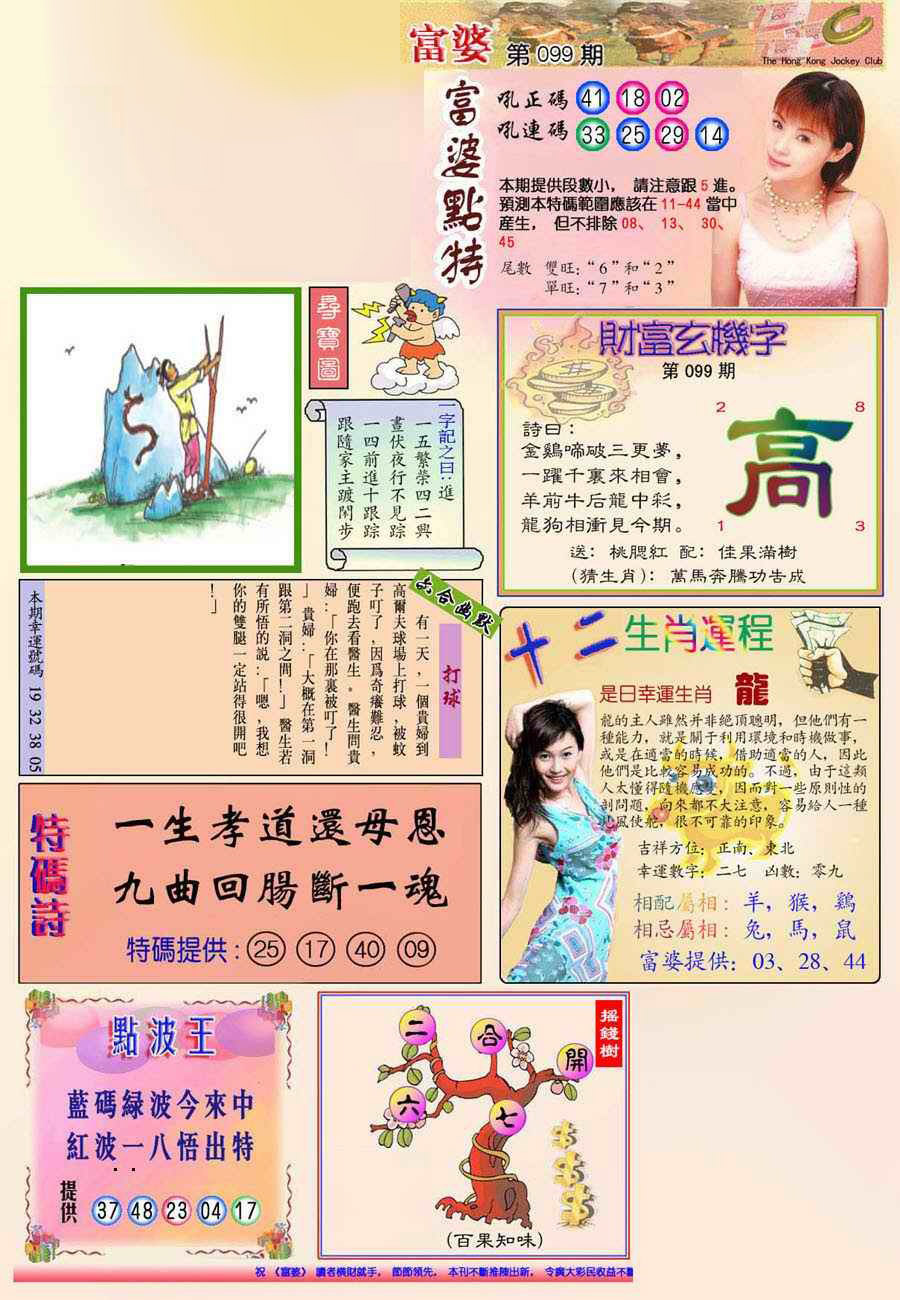 富婆 第099期
The Hong Kong Jockey Club
富婆點特
吼正碼 41 18 02
吼連碼 33 25 29 14
本期提供段數小， 請注意跟5進。
預測本特碼範圍應該在11-44當中
産生， 但不排除08、 13、 30、
45
尾數 雙旺:“6”和“2”
單旺:“7”和“3”
尋寶圖
一字記之曰:進
一五繁榮四二興
晝伏夜行不見踪
一四前進十跟踪
跟隨家主踱閑步
財富玄機字
第099期
詩曰:
金鷄啼破三更夢，
一躍千裏來相會，
羊前牛后龍中彩，
龍狗相衝見今期。
2 8
高
1 3
送: 桃腮紅 配: 佳果滿樹
(猜生肖): 萬馬奔騰功告成
六合幽默
打球
有一天,一個貴婦到
高爾夫球場上打球,被蚊
子叮了,因爲奇癢難忍,
便跑去看醫生。醫生問貴
婦:「你在那裏被叮了!
」貴婦:「大概在第一洞
跟第二洞之間!」醫生若
有所悟的說:「嗯,我想
你的雙腿一定站得很開吧
!」
本期幸運號碼 19 32 38 05
十二生肖運程
是日幸運生肖 龍
龍的主人雖然并非絕頂聰明，但他們有一
種能力，就是關于利用環境和時機做事，
或是在適當的時候，借助適當的人，因此
他們是比較容易成功的。不過，由于這類
人太懂得隨機應變，因而對一些原則性的
剖問題，向來都不大注意，容易給人一種
見風使舵，很不可靠的印象。
吉祥方位: 正南、東北
幸運數字: 二七 凶數: 零九
相配屬相: 羊，猴，鷄
相忌屬相: 兔，馬，鼠
富婆提供: 03、28、44
特碼詩
一生孝道還母恩
九曲回腸斷一魂
特碼提供:25 17 40 09
點波王
藍碼緑波今來中
紅波一八悟出特
提供 37 48 23 04 17
搖錢樹
二 合 開
六 七
(百果知味)
祝 《富婆》 讀者橫財就手， 節節領先， 本刊不斷推陳出新， 令廣大彩民收益不斷